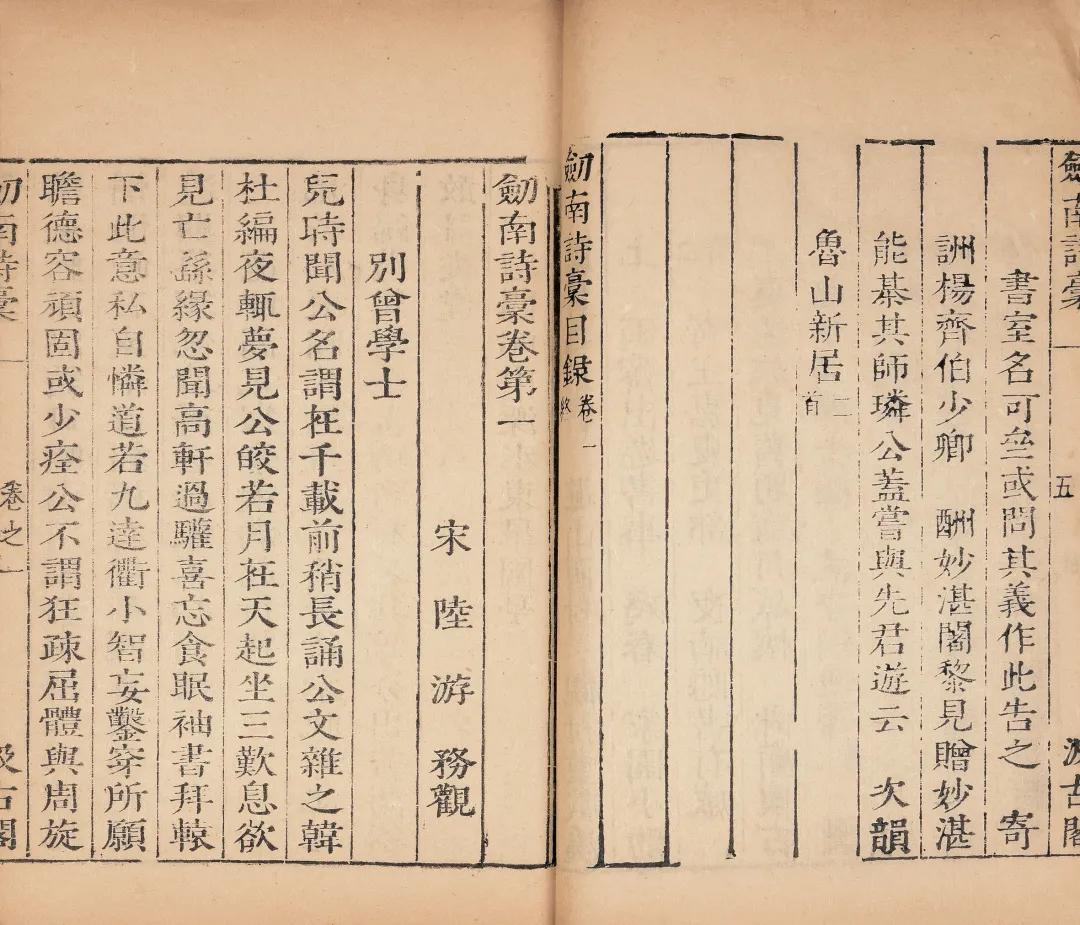 劒南詩稾 五 汲古閣
書室名可壘或問其義作此告之 寄
洲楊齊伯少卿 酬妙湛闍黎見贈妙湛
能棊其師璘公蓋嘗與先君遊云 次韻
魯山新居二首
劒南詩稾目録卷一終
劒南詩稾卷第一
宋 陸 游 務觀
別曾學士
兒時聞公名謂在千載前稍長誦公文雜之韓
杜編夜輒夢見公皎若月在天起坐三歎息欲
見亡繇緣忽聞高軒過驩喜忘食眠袖書拜轅
下此意私自憐道若九逵衢小智妄鑿穿所願
瞻德容頑固或少痊公不謂狂疎屈體與周旋
劒南詩稾 卷之一 汲古閣